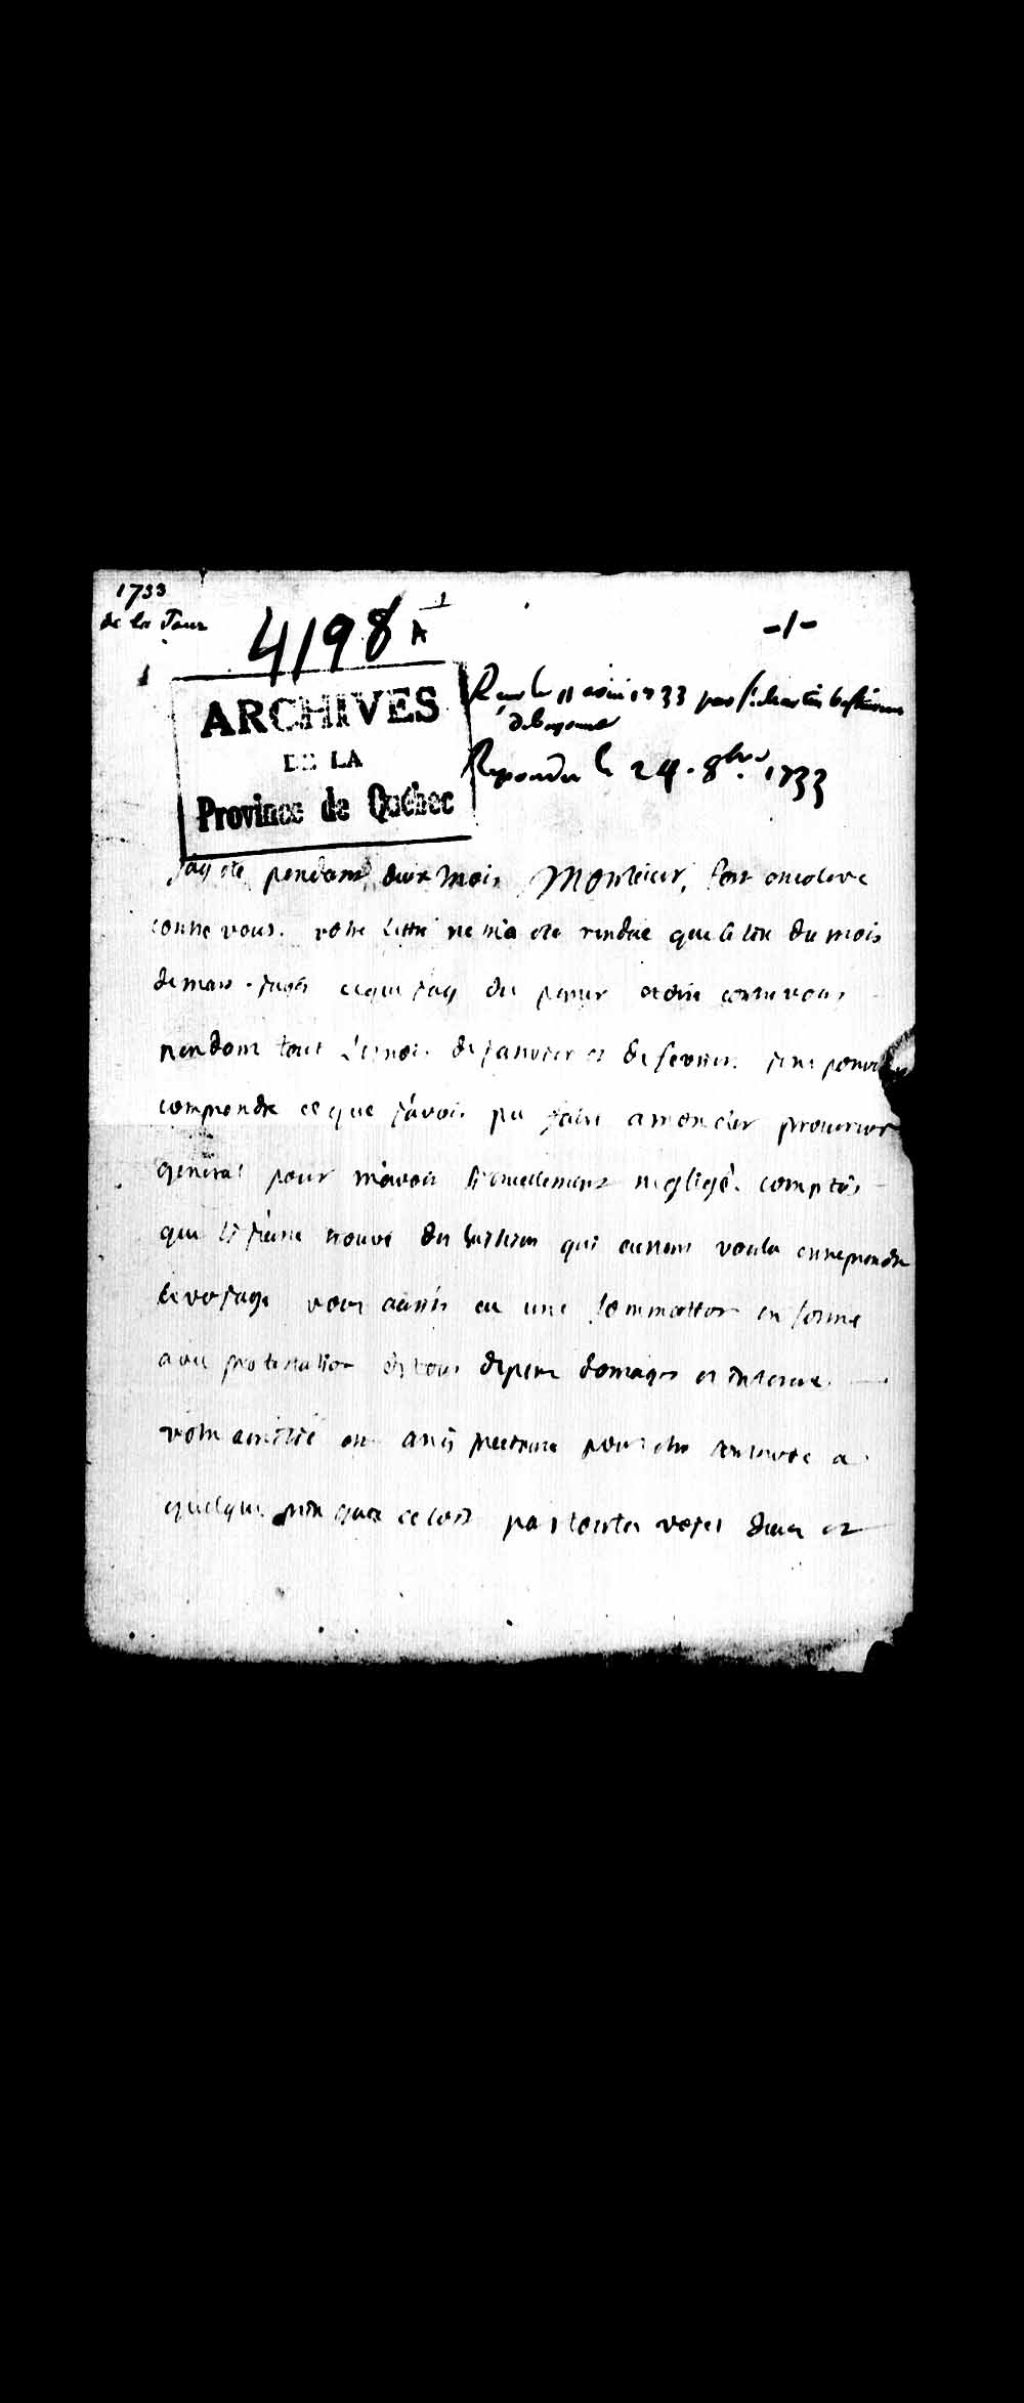 1733
de la Tour
4198 A 1
-1-
1
ARCHIVES
DE LA
Province de Québec
le 11 1733 par
Repondu le 24. 8bre 1733
J'ay ete pendant deux mois Monsieur, fort en colere
contre vous. votre lettre ne m'a ete rendue que le du mois
de mars. jugés ce que j'ay du penser et dire contre vous
pendant tout le mois de janvier et de fevrier. je ne pouvois
comprendre ce que j'avois pu faire a mon cher procureur
general pour m'avoir si cruellement negligé. comptés
que si j'eusse trouvé des huissiers qui eussent voulu entreprendre
le voyage vous auriés eu une sommation en forme
avec protestation de tous depens domages et interest.
votre amitié est assés pretieuse pour etre
quelque prix que ce soit par toutes voyes dues et